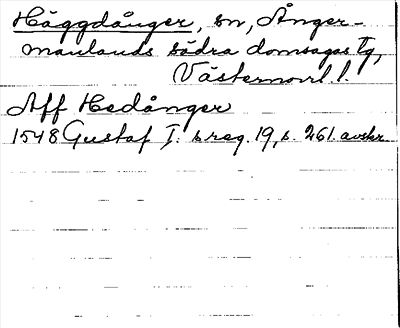 Häggdånger, sn, Ånger-
manlands södra domsagas tg,
Västernorrl. l.
Aff Hedånger
1548 Gustaf I: s reg. 19, s. 261. avskr.